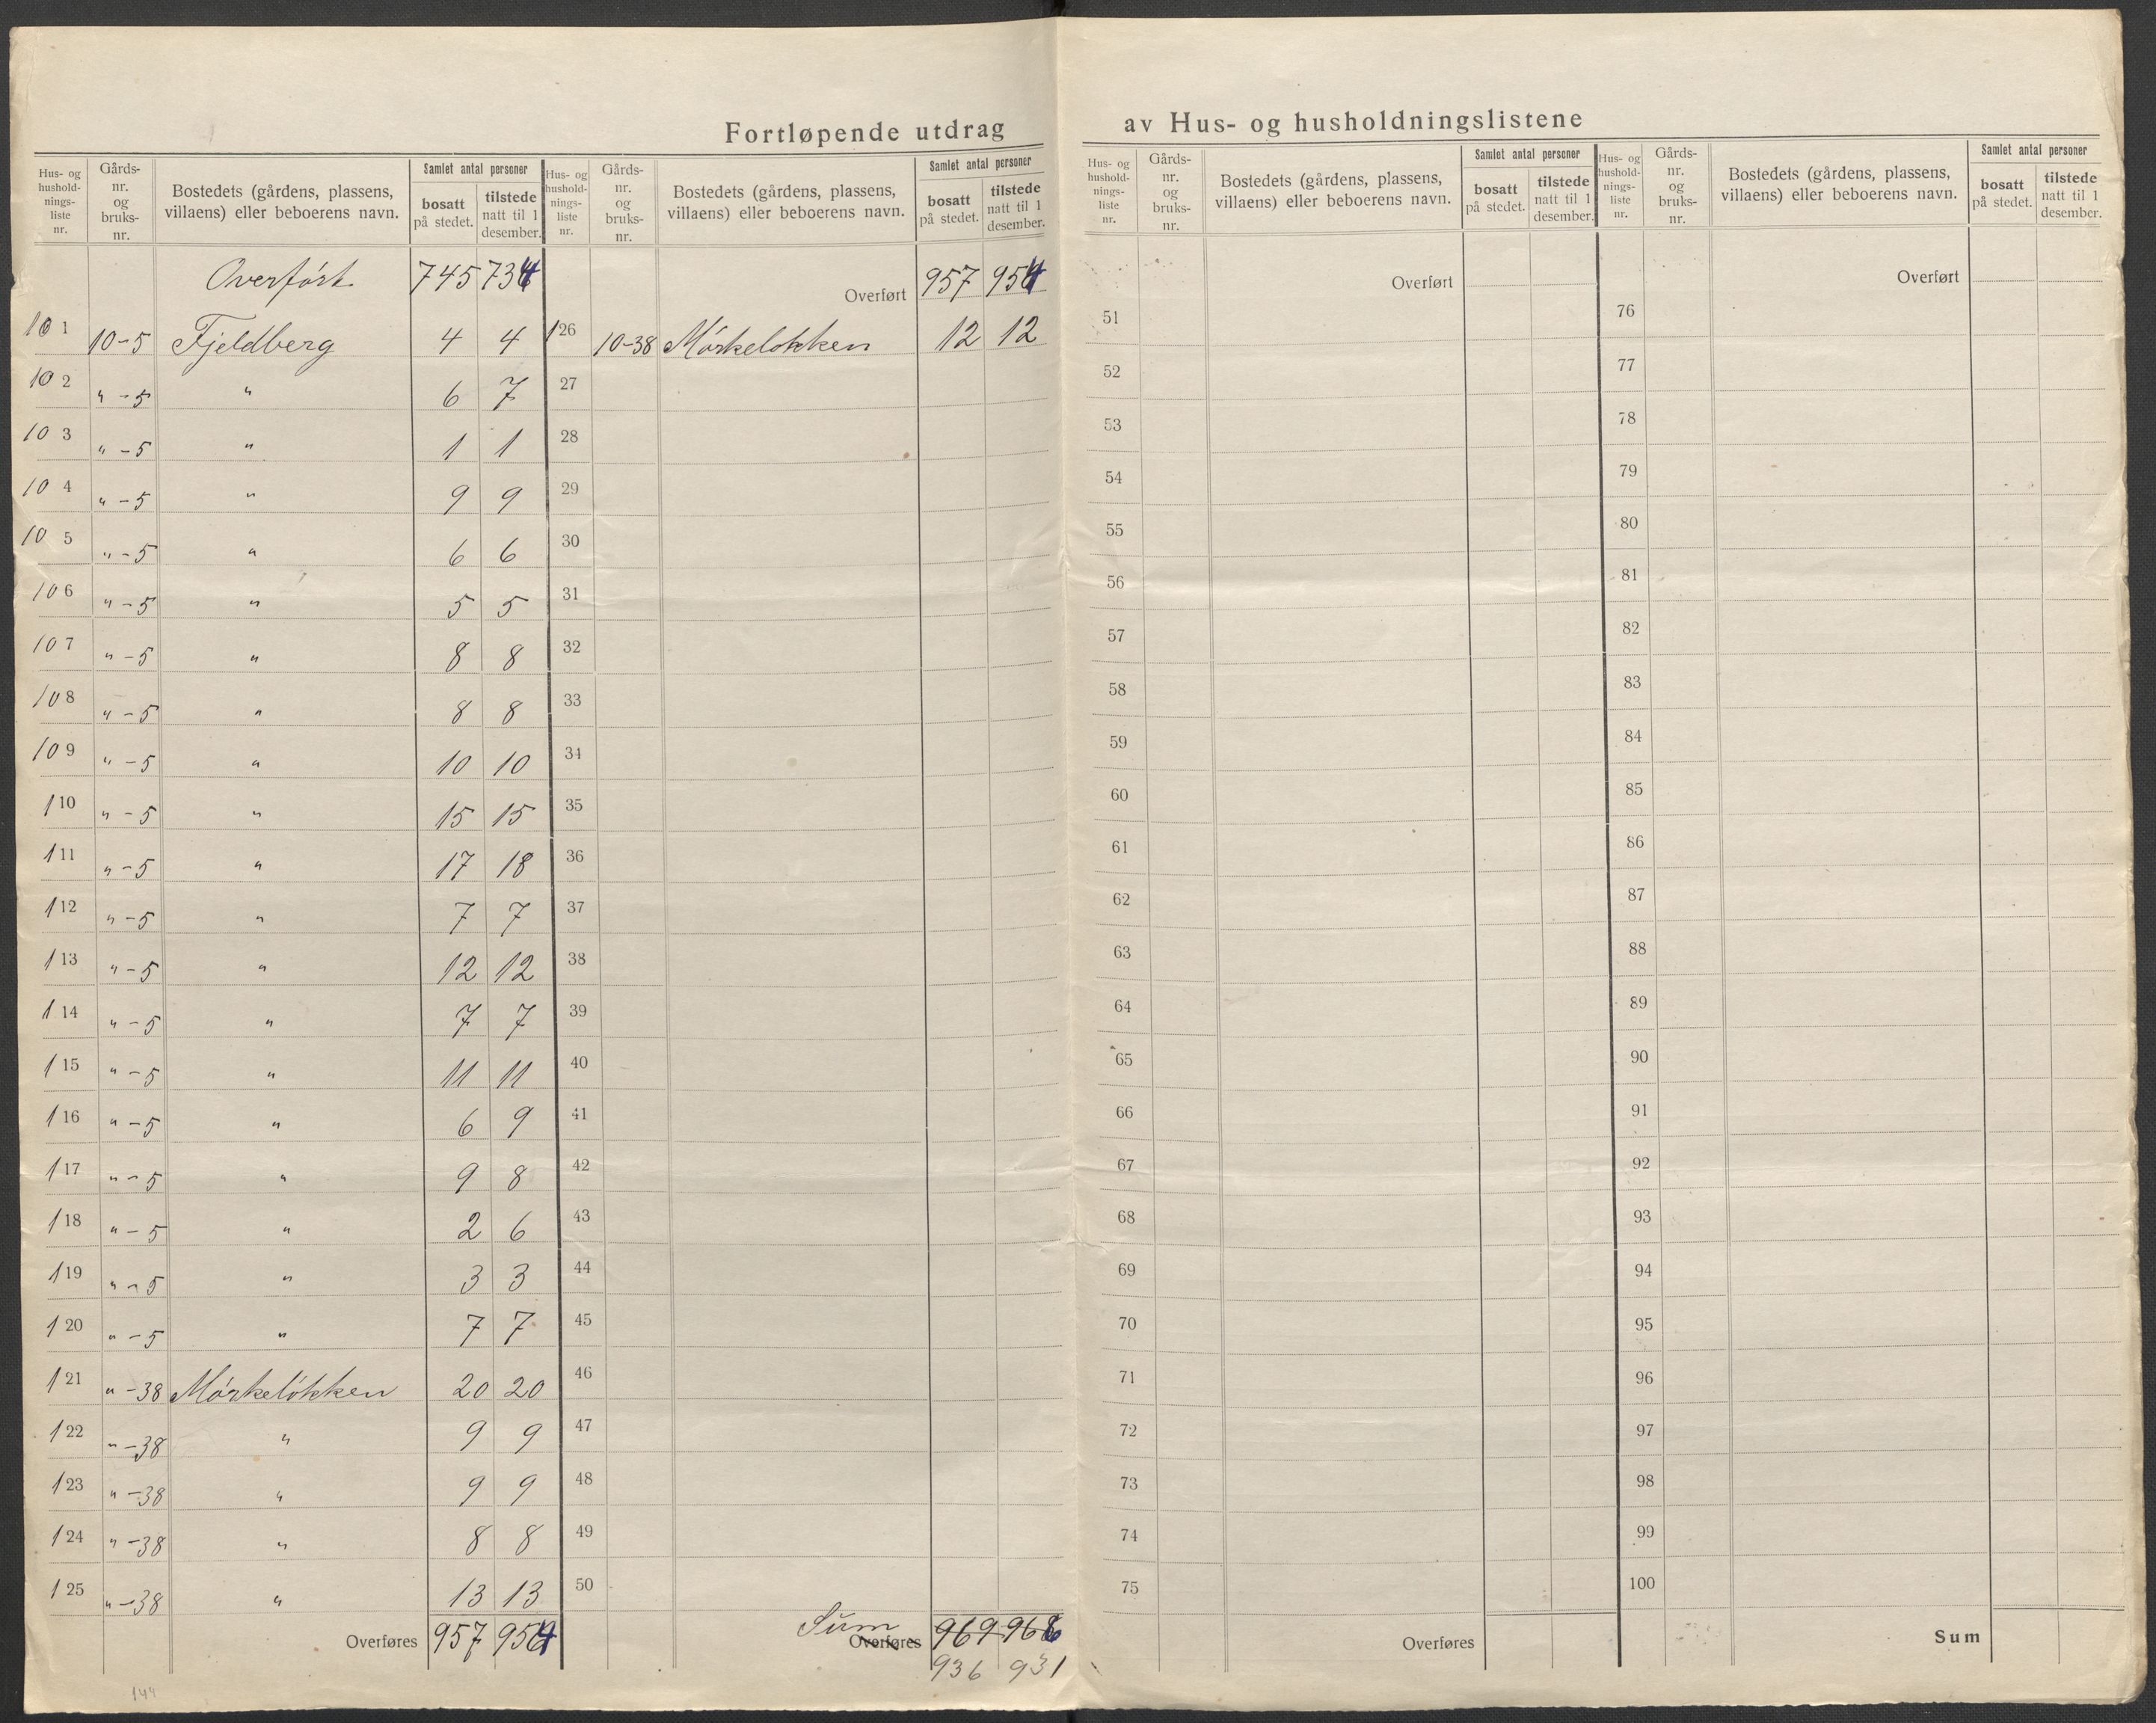 Fortløpende utdrag av Hus- og husholdningslistene
Hus- og hushold-nings-liste nr. | Gårds-nr. og bruks-nr. | Bostedets (gårdens, plassens, villaens) eller beboerens navn. | Samlet antal personer | bosatt på stedet. | tilstede natt til 1 desember.
Overført 745 734
101 10-5 Fjeldberg 4 4
102 " -5 " 6 7
103 " -5 " 1 1
104 " -5 " 9 9
105 " -5 " 6 6
106 " -5 " 5 5
107 " -5 " 8 8
108 " -5 " 8 8
109 " -5 " 10 10
110 " -5 " 15 15
111 " -5 " 17 18
112 " -5 " 7 7
113 " -5 " 12 12
114 " -5 " 7 7
115 " -5 " 11 11
116 " -5 " 6 9
117 " -5 " 9 8
118 " -5 " 2 6
119 " -5 " 3 3
120 " -5 " 7 7
121 " -38 Mórkelókken 20 20
122 " -38 " 9 9
123 " -38 " 9 9
124 " -38 " 8 8
125 " -38 " 13 13
Overføres 957 954
144
Hus- og hushold-nings-liste nr. | Gårds-nr. og bruks-nr. | Bostedets (gårdens, plassens, villaens) eller beboerens navn. | Samlet antal personer | bosatt på stedet. | tilstede natt til 1 desember.
Overført 957 954
126 10-38 Mórkelokken 12 12
27
28
29
30
31
32
33
34
35
36
37
38
39
40
41
42
43
44
45
46
47
48
49
50
Sum
Overføres 969 966
936 931
Hus- og hushold-nings-liste nr. | Gårds-nr. og bruks-nr. | Bostedets (gårdens, plassens, villaens) eller beboerens navn. | Samlet antal personer | bosatt på stedet. | tilstede natt til 1 desember.
Overført
51
52
53
54
55
56
57
58
59
60
61
62
63
64
65
66
67
68
69
70
71
72
73
74
75
Overføres
Hus- og hushold-nings-liste nr. | Gårds-nr. og bruks-nr. | Bostedets (gårdens, plassens, villaens) eller beboerens navn. | Samlet antal personer | bosatt på stedet. | tilstede natt til 1 desember.
Overført
76
77
78
79
80
81
82
83
84
85
86
87
88
89
90
91
92
93
94
95
96
97
98
99
100
Sum